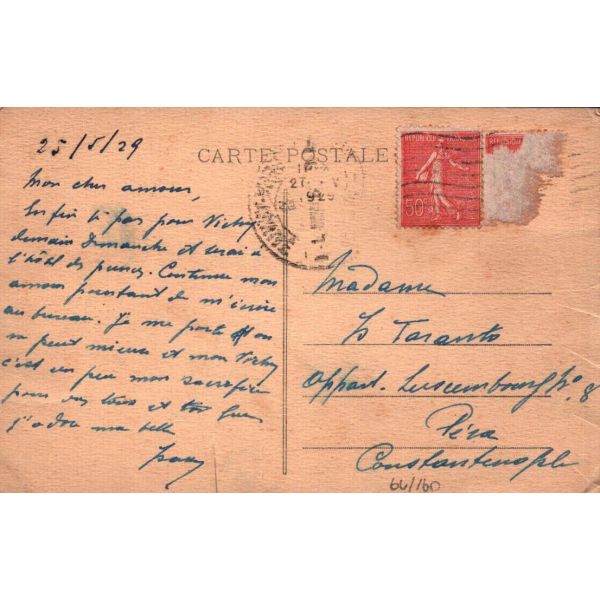 25/5/29
CARTE POSTALE
REPUBLIQUE FRANÇAISE
50c
27
1929
Mon cher amour,
pars pour Vichy
demain Dimanche et serai à
l'hôtel des princes. Continue mon
amour pourtant de m'écrire
au bureau. Je me porte on
ne peut mieux et mon Vichy
c'est un peu mon sacrifice
pour vous tous et
j'adore ma belle
Madame
Taranto
Appart. Luxembourg No. 8
Péra
Constantinople
64/160